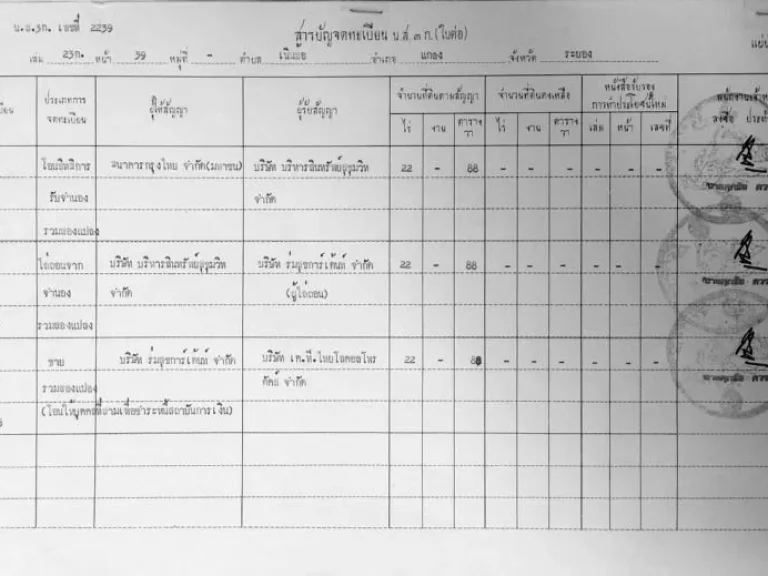 น.ส.3ก. เลขที่ 2239
สารบัญจดทะเบียน น.ส.๓ ก.(ใบต่อ)
เล่ม 23ก. หน้า 39 หมู่ที่ - ตำบล เนินฆ้อ อำเภอ แกลง จังหวัด ระยอง
ประเภทการจดทะเบียน ผู้ให้สัญญา ผู้รับสัญญา จำนวนที่ดินตามสัญญา จำนวนที่ดินคงเหลือ หนังสือรับรองการทำประโยชน์ใหม่
ไร่ งาน ตารางวา ไร่ งาน ตารางวา เล่ม หน้า เลขที่ ลงชื่อ
โอนสิทธิการ ธนาคารกรุงไทย จำกัด(มหาชน) บริษัท บริหารสินทรัพย์สุขุมวิท 22 - 88 - - - - - -
รับจำนอง จำกัด
รวมสองแปลง
ไถ่ถอนจาก บริษัท บริหารสินทรัพย์สุขุมวิท บริษัท ร่มสุขการ์เด้นท์ จำกัด 22 - 88 - - - - - -
จำนอง จำกัด (ผู้ไถ่ถอน)
รวมสองแปลง
ขาย บริษัท ร่มสุขการ์เด้นท์ จำกัด บริษัท เค.ที.ไทยโลคอลโพร 22 - 88 - - - - - -
รวมสองแปลง ดัคส์ จำกัด
(โอนให้บุคคลที่สามเพื่อชำระหนี้สถาบันการเงิน)